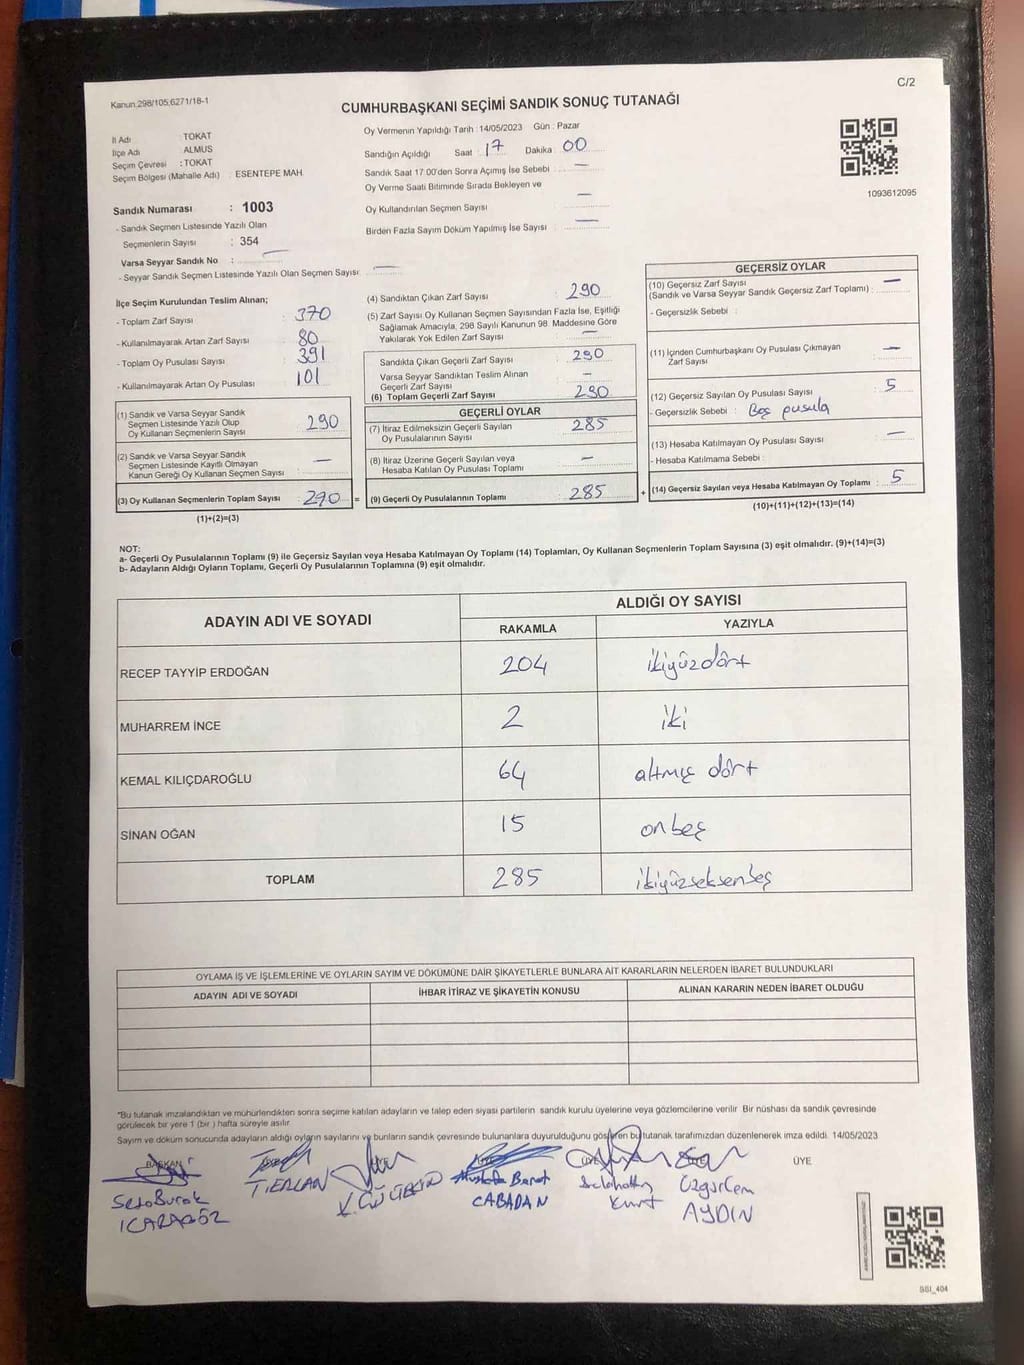 C/2
Kanun,298/105;6271/18-1
CUMHURBAŞKANI SEÇİMİ SANDIK SONUÇ TUTANAĞI
İl Adı TOKAT
İlçe Adı ALMUS
Seçim Çevresi : TOKAT
Seçim Bölgesi (Mahalle Adı) : ESENTEPE MAH.
Sandık Numarası : 1003
- Sandık Seçmen Listesinde Yazılı Olan
Seçmenlerin Sayısı : 354
Varsa Seyyar Sandık No : —
- Seyyar Sandık Seçmen Listesinde Yazılı Olan Seçmen Sayısı: —
Oy Vermenin Yapıldığı Tarih :14/05/2023 Gün : Pazar
Sandığın Açıldığı Saat : 17 Dakika : 00
Sandık Saat 17:00'den Sonra Açımış İse Sebebi : —
Oy Verme Saati Bitiminde Sırada Bekleyen ve
Oy Kullandırılan Seçmen Sayısı —
Birden Fazla Sayım Döküm Yapılmış İse Sayısı : —
1093612095
İlçe Seçim Kurulundan Teslim Alınan;
- Toplam Zarf Sayısı : 370
- Kullanılmayarak Artan Zarf Sayısı : 80
- Toplam Oy Pusulası Sayısı : 391
- Kullanılmayarak Artan Oy Pusulası : 101
(1) Sandık ve Varsa Seyyar Sandık
Seçmen Listesinde Yazılı Olup
Oy Kullanan Seçmenlerin Sayısı : 290
(2) Sandık ve Varsa Seyyar Sandık
Seçmen Listesinde Kayıtlı Olmayan
Kanun Gereği Oy Kullanan Seçmen Sayısı : —
(3) Oy Kullanan Seçmenlerin Toplam Sayısı : 290 =
(1)+(2)=(3)
(4) Sandıktan Çıkan Zarf Sayısı : 290
(5) Zarf Sayısı Oy Kullanan Seçmen Sayısından Fazla İse, Eşitliği
Sağlamak Amacıyla, 298 Sayılı Kanunun 98. Maddesine Göre
Yakılarak Yok Edilen Zarf Sayısı : —
Sandıkta Çıkan Geçerli Zarf Sayısı : 290
Varsa Seyyar Sandıktan Teslim Alınan
Geçerli Zarf Sayısı : —
(6) Toplam Geçerli Zarf Sayısı : 290
GEÇERLİ OYLAR
(7) İtiraz Edilmeksizin Geçerli Sayılan
Oy Pusulalarının Sayısı : 285
(8) İtiraz Üzerine Geçerli Sayılan veya
Hesaba Katılan Oy Pusulası Toplamı : —
(9) Geçerli Oy Pusulalarının Toplamı : 285 +
GEÇERSİZ OYLAR
(10) Geçersiz Zarf Sayısı
(Sandık ve Varsa Seyyar Sandık Geçersiz Zarf Toplamı) : —
- Geçersizlik Sebebi :
(11) İçinden Cumhurbaşkanı Oy Pusulası Çıkmayan
Zarf Sayısı : —
(12) Geçersiz Sayılan Oy Pusulası Sayısı : 5
- Geçersizlik Sebebi : Boş pusula
(13) Hesaba Katılmayan Oy Pusulası Sayısı : —
- Hesaba Katılmama Sebebi :
(14) Geçersiz Sayılan veya Hesaba Katılmayan Oy Toplamı : 5
(10)+(11)+(12)+(13)=(14)
NOT:
a- Geçerli Oy Pusulalarının Toplamı (9) ile Geçersiz Sayılan veya Hesaba Katılmayan Oy Toplamı (14) Toplamları, Oy Kullanan Seçmenlerin Toplam Sayısına (3) eşit olmalıdır. (9)+(14)=(3)
b- Adayların Aldığı Oyların Toplamı, Geçerli Oy Pusulalarının Toplamına (9) eşit olmalıdır.
ADAYIN ADI VE SOYADI ALDIĞI OY SAYISI
RAKAMLA YAZIYLA
RECEP TAYYİP ERDOĞAN 204 ikiyüzdört
MUHARREM İNCE 2 iki
KEMAL KILIÇDAROĞLU 64 altmış dört
SİNAN OĞAN 15 onbeş
TOPLAM 285 ikiyüzseksenbeş
OYLAMA İŞ VE İŞLEMLERİNE VE OYLARIN SAYIM VE DÖKÜMÜNE DAİR ŞİKAYETLERLE BUNLARA AİT KARARLARIN NELERDEN İBARET BULUNDUKLARI
ADAYIN ADI VE SOYADI İHBAR İTİRAZ VE ŞİKAYETİN KONUSU ALINAN KARARIN NEDEN İBARET OLDUĞU
*Bu tutanak imzalandıktan ve mühürlendikten sonra seçime katılan adayların ve talep eden siyasi partilerin sandık kurulu üyelerine veya gözlemcilerine verilir. Bir nüshası da sandık çevresinde
görülecek bir yere 1 (bir ) hafta süreyle asılır.
Sayım ve döküm sonucunda adayların aldığı oyların sayılarını ve bunların sandık çevresinde bulunanlara duyurulduğunu gösteren bu tutanak tarafımızdan düzenlenerek imza edildi. 14/05/2023
BAŞKAN ÜYE ÜYE
T. ERCAN
Mustafa Berat
CABADAN
Kurt
AYDIN
SSİ_404